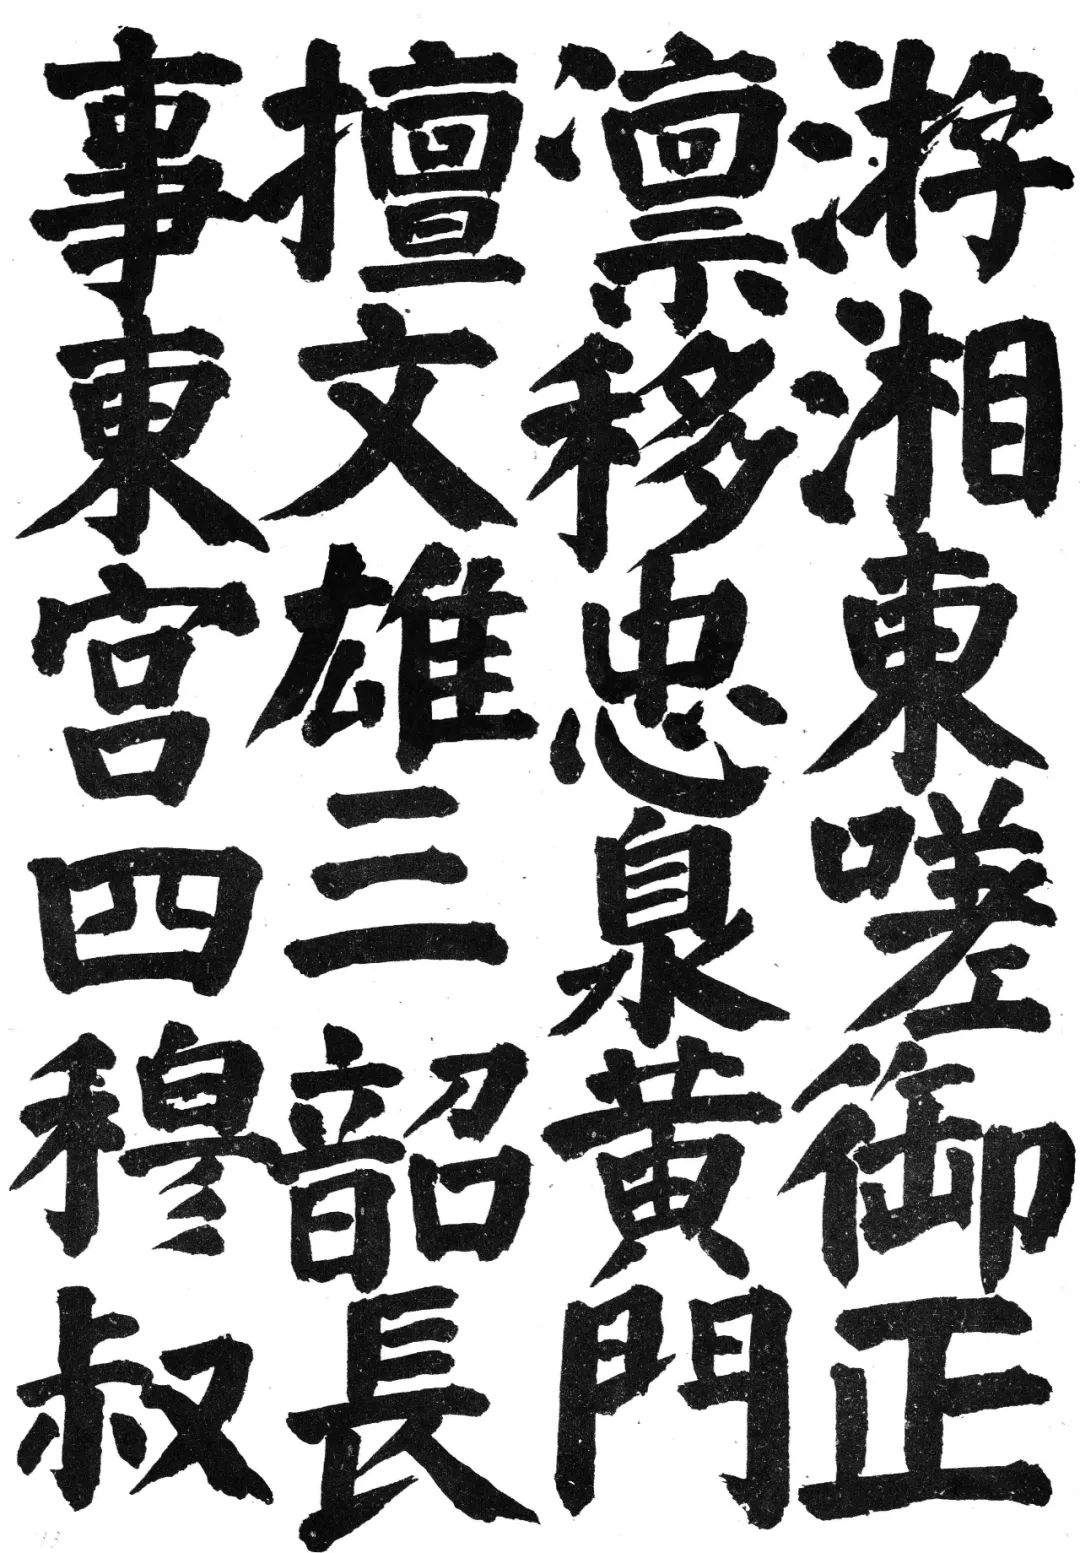 游湘東嗟御正
凛移忠泉黄門
擅文雄三韶長
事東宮四穆叔